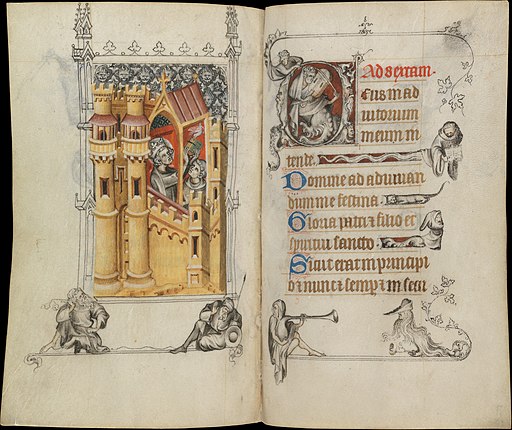 Ad sextam.
Deus in ad
iutorium
meum in
tende.
Domine ad adiuuan
dum me festina.
Gloria patri ⁊ filio et
spiritui sancto.
Sicut erat in principi
o ⁊ nunc ⁊ semper ⁊ in secu